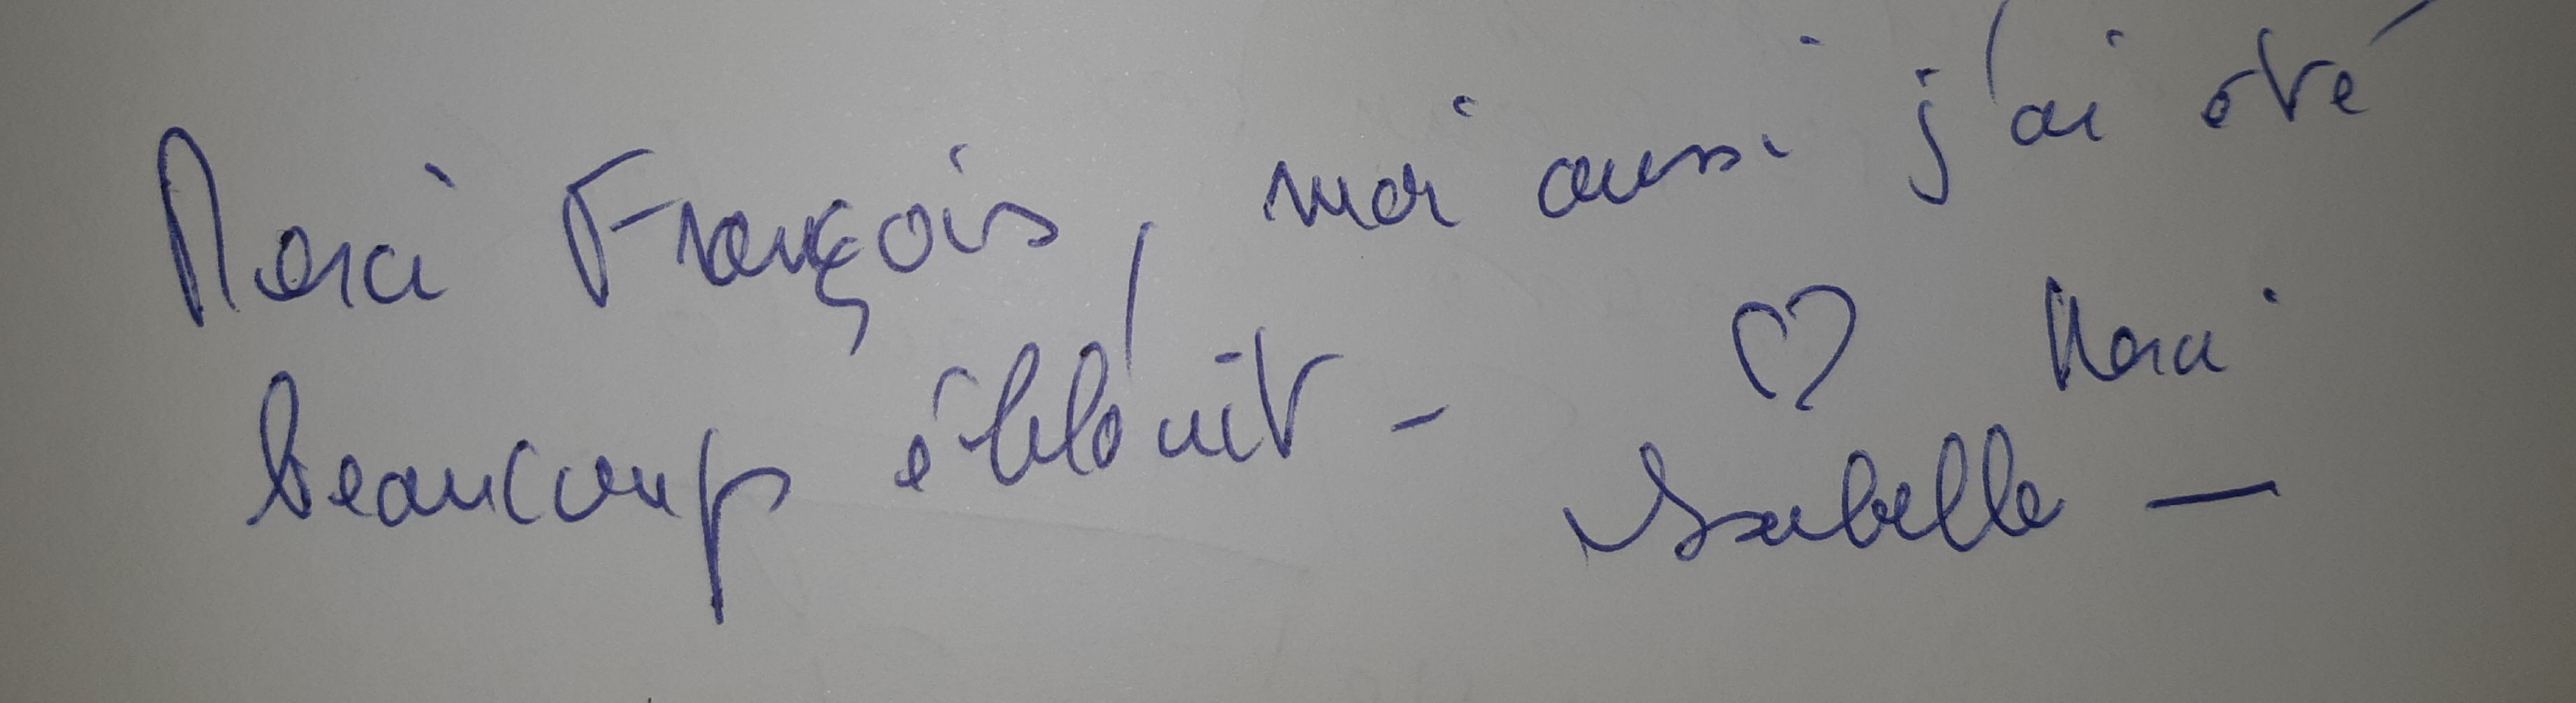 Merci François, moi aussi j'ai été
beaucoup éblouit - ♡ Merci
Isabelle —